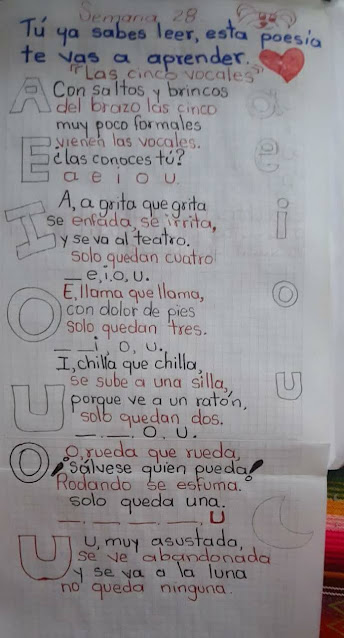 Semana 28
Tú ya sabes leer, esta poesía
te vas a aprender.
"Las cinco vocales"
A
Con saltos y brincos
del brazo las cinco
muy poco formales
E
vienen las vocales.
¿las conoces tú?
a e i o u.
A, a grita que grita
I
se enfada, se irrita,
y se va al teatro.
solo quedan cuatro
_ e, i, o, u.
E, llama que llama,
O
con dolor de pies
solo quedan tres.
_ _ i, o, u.
I, chilla que chilla,
se sube a una silla,
U
porque ve a un ratón,
solo quedan dos.
_ _ _ o, u.
O
O, rueda que rueda,
¡Sálvese quien pueda!
Rodando se esfuma.
solo queda una.
_ _ _ _ u
U
U, muy asustada,
se ve abandonada
y se va a la luna
no queda ninguna.
a
e
i
o
u